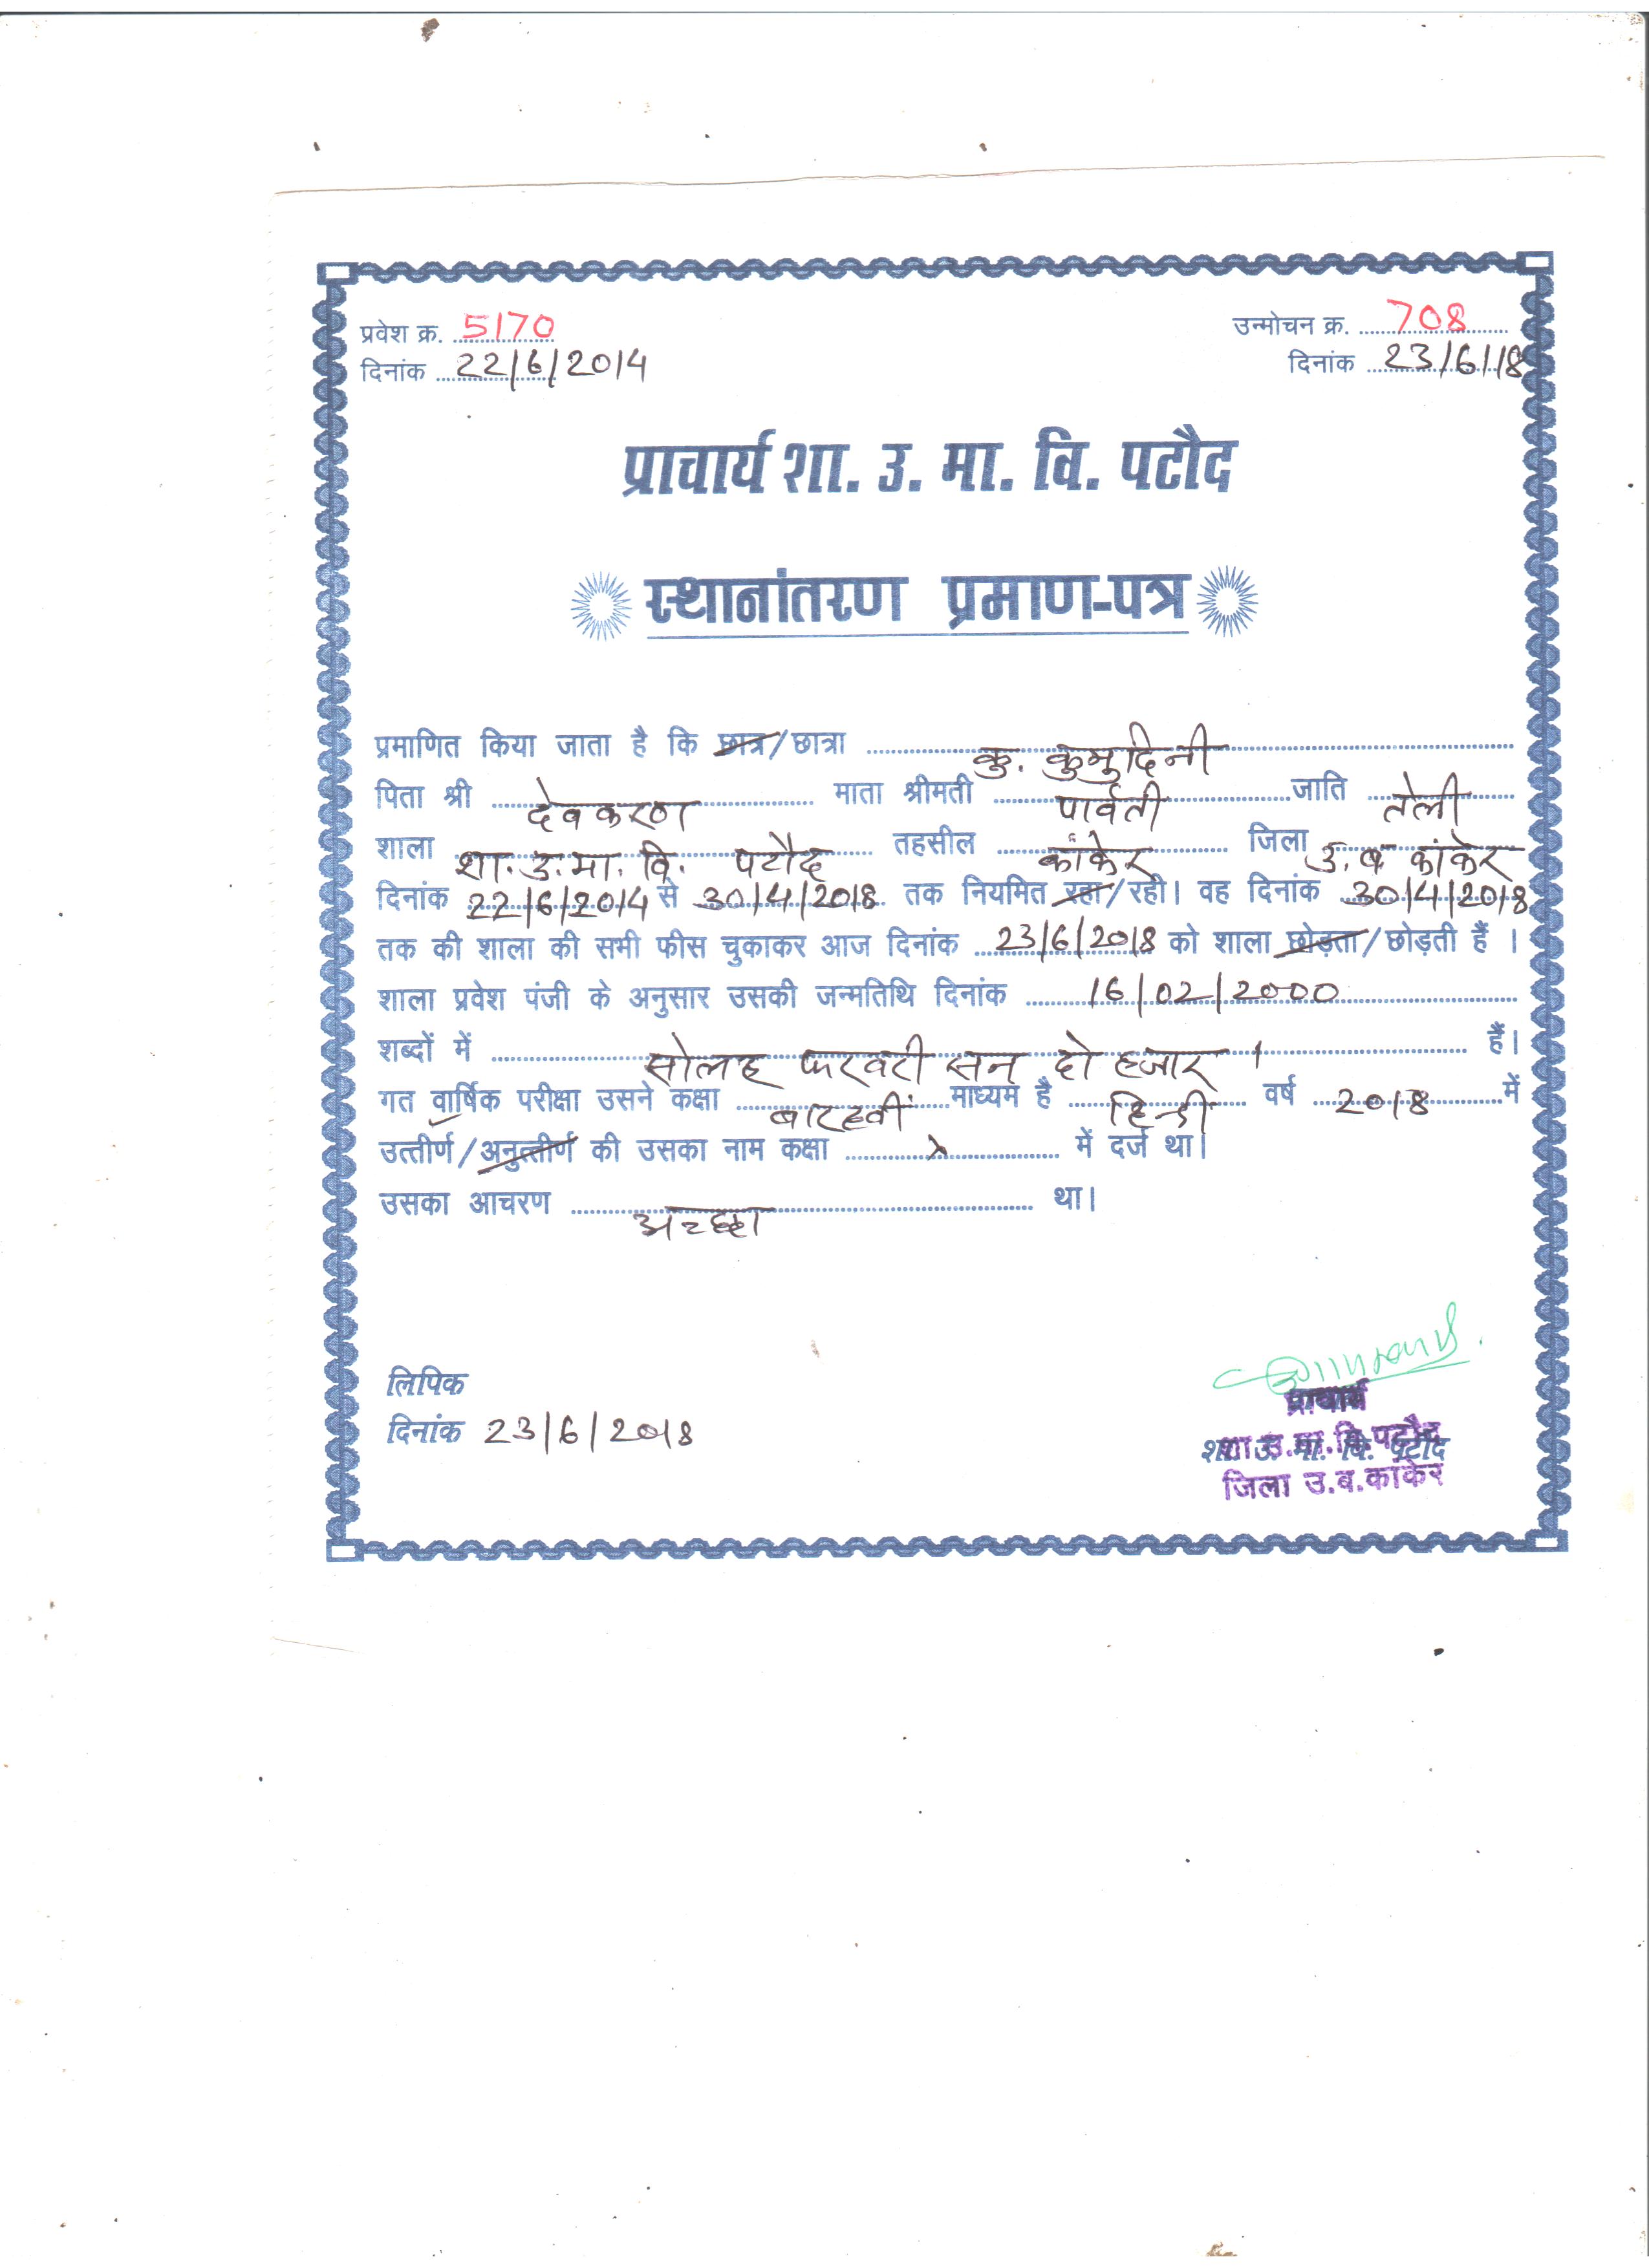 प्रवेश क्र. 5170 उन्मोचन क्र. 708
दिनांक 22/6/2014 दिनांक 23/6/18
प्राचार्य शा. उ. मा. वि. पटौद
स्थानांतरण प्रमाण-पत्र
प्रमाणित किया जाता है कि छात्र/छात्रा कु. कुमुदिनी
पिता श्री देवकरण माता श्रीमती पार्वती जाति तेली
शाला शा.उ.मा.वि. पटौद तहसील कांकेर जिला उ.ब कांकेर
दिनांक 22/6/2014 से 30/4/2018 तक नियमित रहा/रही। वह दिनांक 30/4/2018
तक की शाला की सभी फीस चुकाकर आज दिनांक 23/6/2018 को शाला छोड़ता/छोड़ती हैं ।
शाला प्रवेश पंजी के अनुसार उसकी जन्मतिथि दिनांक 16/02/2000
शब्दों में सोलह फरवरी सन दो हजार । हैं।
गत वार्षिक परीक्षा उसने कक्षा बारहवीं माध्यम है हिन्दी वर्ष 2018 में
उत्तीर्ण/अनुत्तीर्ण की उसका नाम कक्षा x में दर्ज था।
उसका आचरण अच्छा था।
लिपिक
दिनांक 23/6/2018
प्राचार्य
शा.उ.मा.वि.पटौद
जिला उ.ब.कांकेर